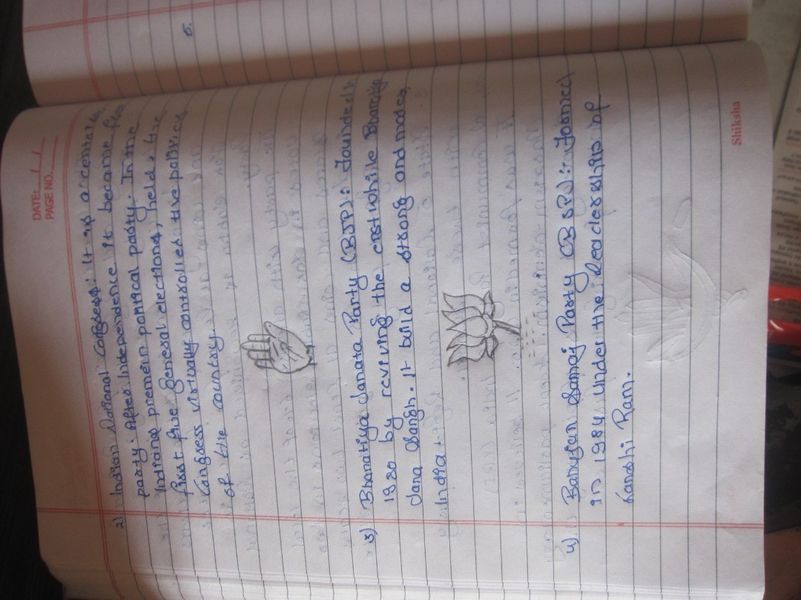 DATE: / /
PAGE NO.
2) Indian National Congress: It is a centralis
party. After Independence it became
Indians premein political party. In the
first five general elections, held, the
Congress virtually controlled the politics
of the country.
3) Bharatiya Janata Party (BJP): Founded in
1980 by reviving the erstwhile Bharatiya
Jana Sangh. It build a strong and modern
India.
4) Bahujan Samaj Party (BSP): Formed
in 1984 under the leadership of
Kanshi Ram.
Shiksha
5.